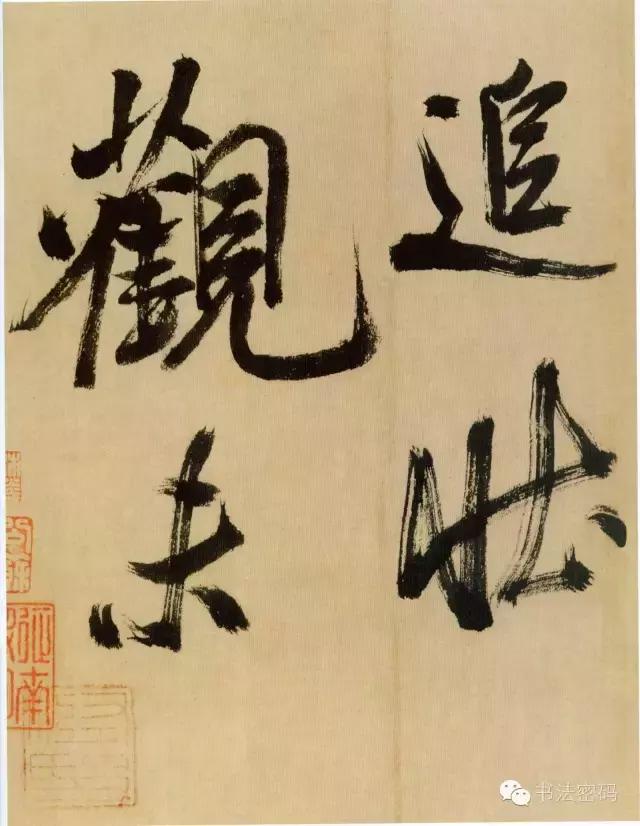 追壯
觀未
书法密码